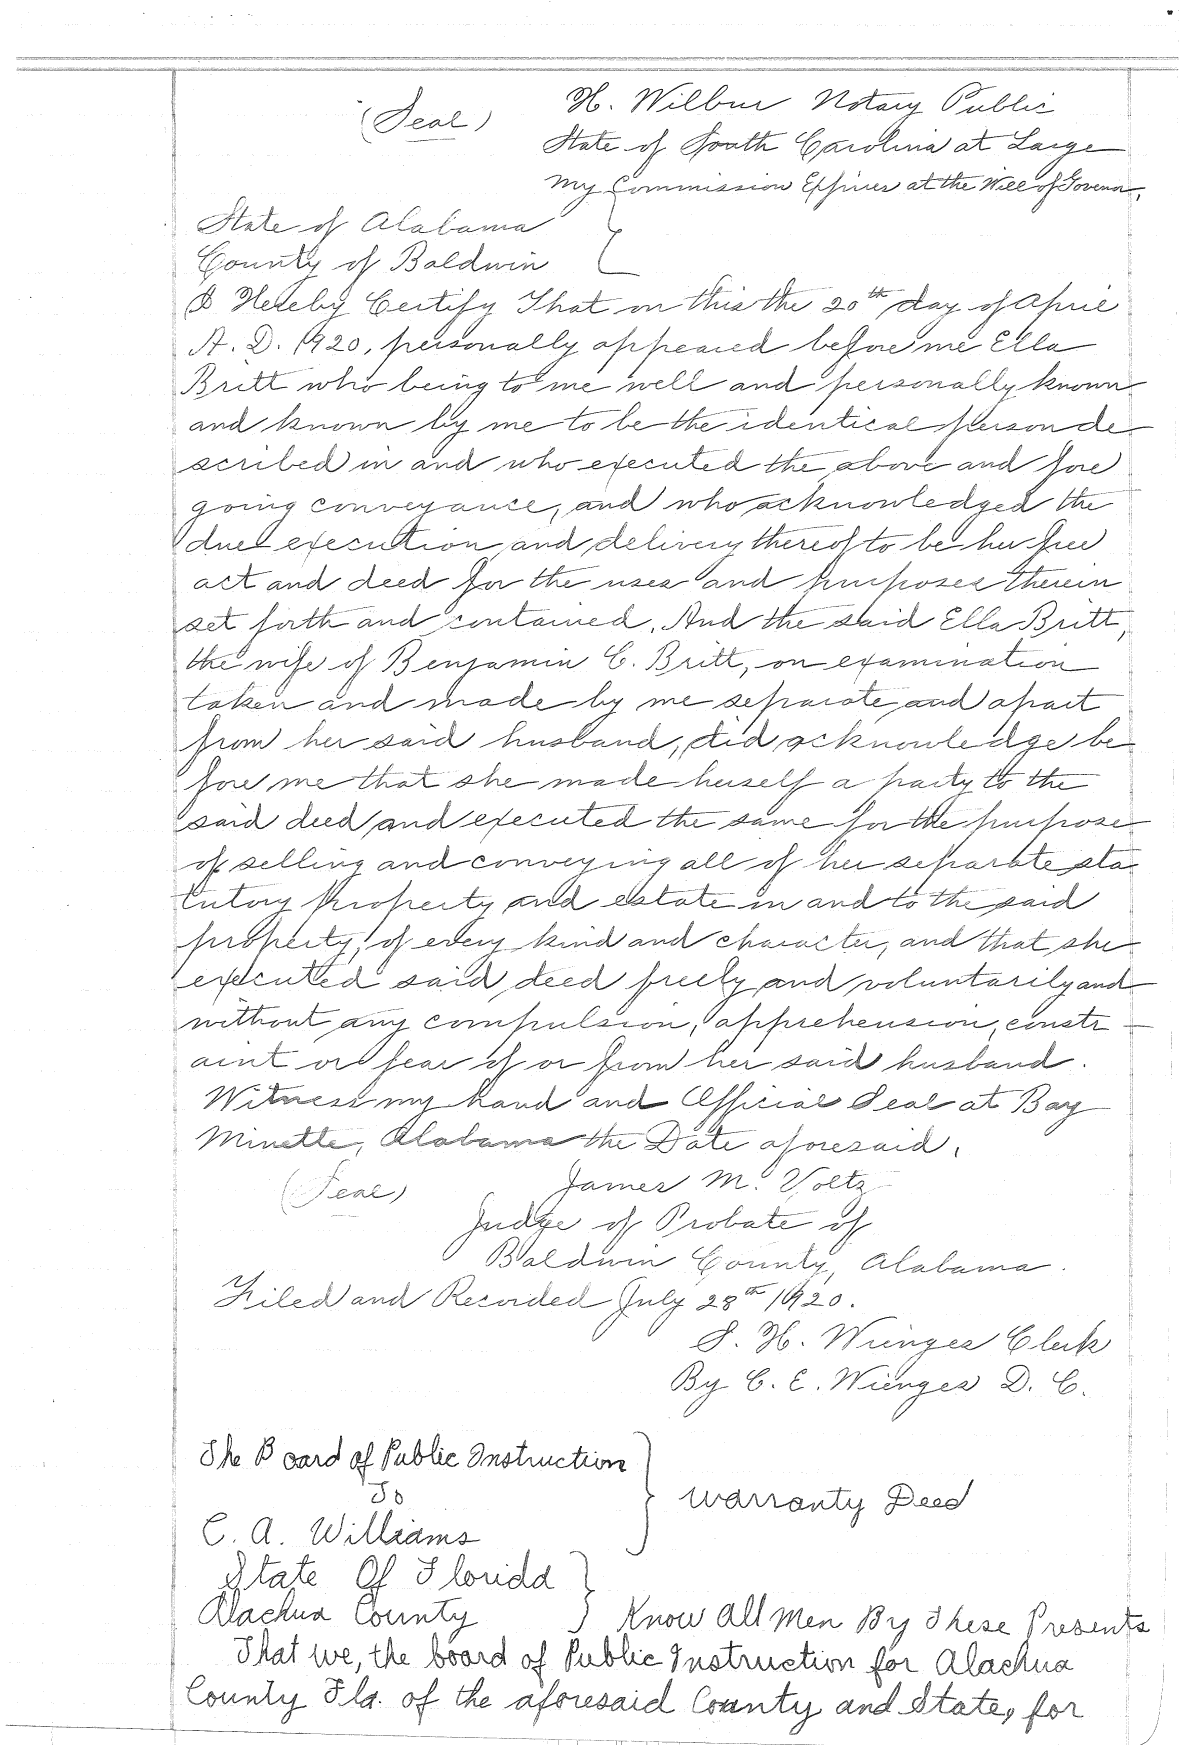 (Seal) H. Wilbur Notary Public
State of South Carolina at Large
My Commission Expires at the Will of Govenor,
State of Alabama
County of Baldwin
I Hereby Certify That on this the 20th day of April
A. D. 1920, personally appeared before me Ella
Britt who being to me well and personally known
and known by me to be the identical person de
scribed in and who executed the above and fore
going conveyance, and who acknowledged the
due execution and delivery thereof to be her free
act and deed for the uses and purposes therein
set forth and contained. And the said Ella Britt,
the wife of Benjamin C. Britt, on examination
taken and made by me separate and apart
from her said husband, did acknowledge be
fore me that she made herself a party to the
said deed and executed the same for the purpose
of selling and conveying all of her separate sta
tutory property and estate in and to the said
property, of every kind and character, and that she
executed said deed freely and voluntarily and
without any compulsion, apprehension, constr-
aint or fear of or from her said husband.
Witness my hand and Official Seal at Bay
Minette, Alabama the Date aforesaid.
(Seal) James M. Voltz
Judge of Probate of
Baldwin County, Alabama.
Filed and Recorded July 28th 1920.
S. H. Wienges Clerk
By C. E. Wienges D. C.
The Board of Public Instruction
To
Warranty Deed
C. A. Williams
State Of Florida
Alachua County Know All Men By These Presents
That we, the board of Public Instruction for Alachua
County Fla. of the aforesaid County and State, for